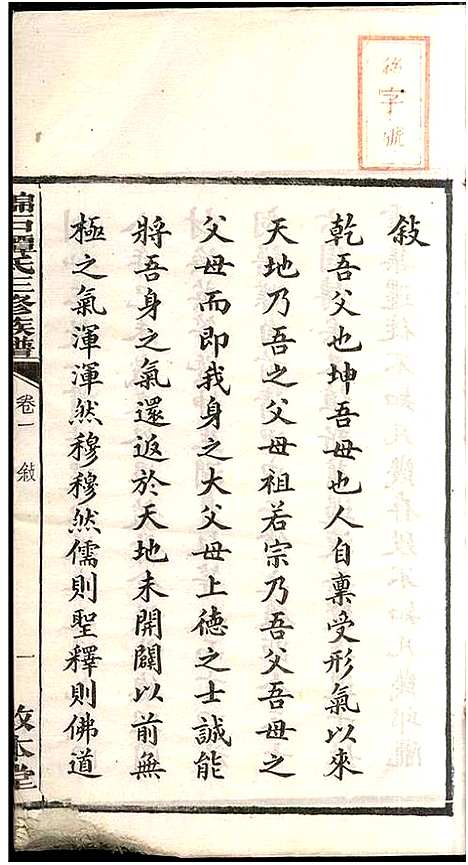 字號
敍
乾吾父也坤吾母也人自稟受形氣以來
天地乃吾之父母祖若宗乃吾父吾母之
父母而即我身之大父母上德之士誠能
將吾身之氣還返於天地未開闢以前無
極之氣渾渾然穆穆然儒則聖釋則佛道
石譚氏三修族譜
卷一 敍
一
本堂